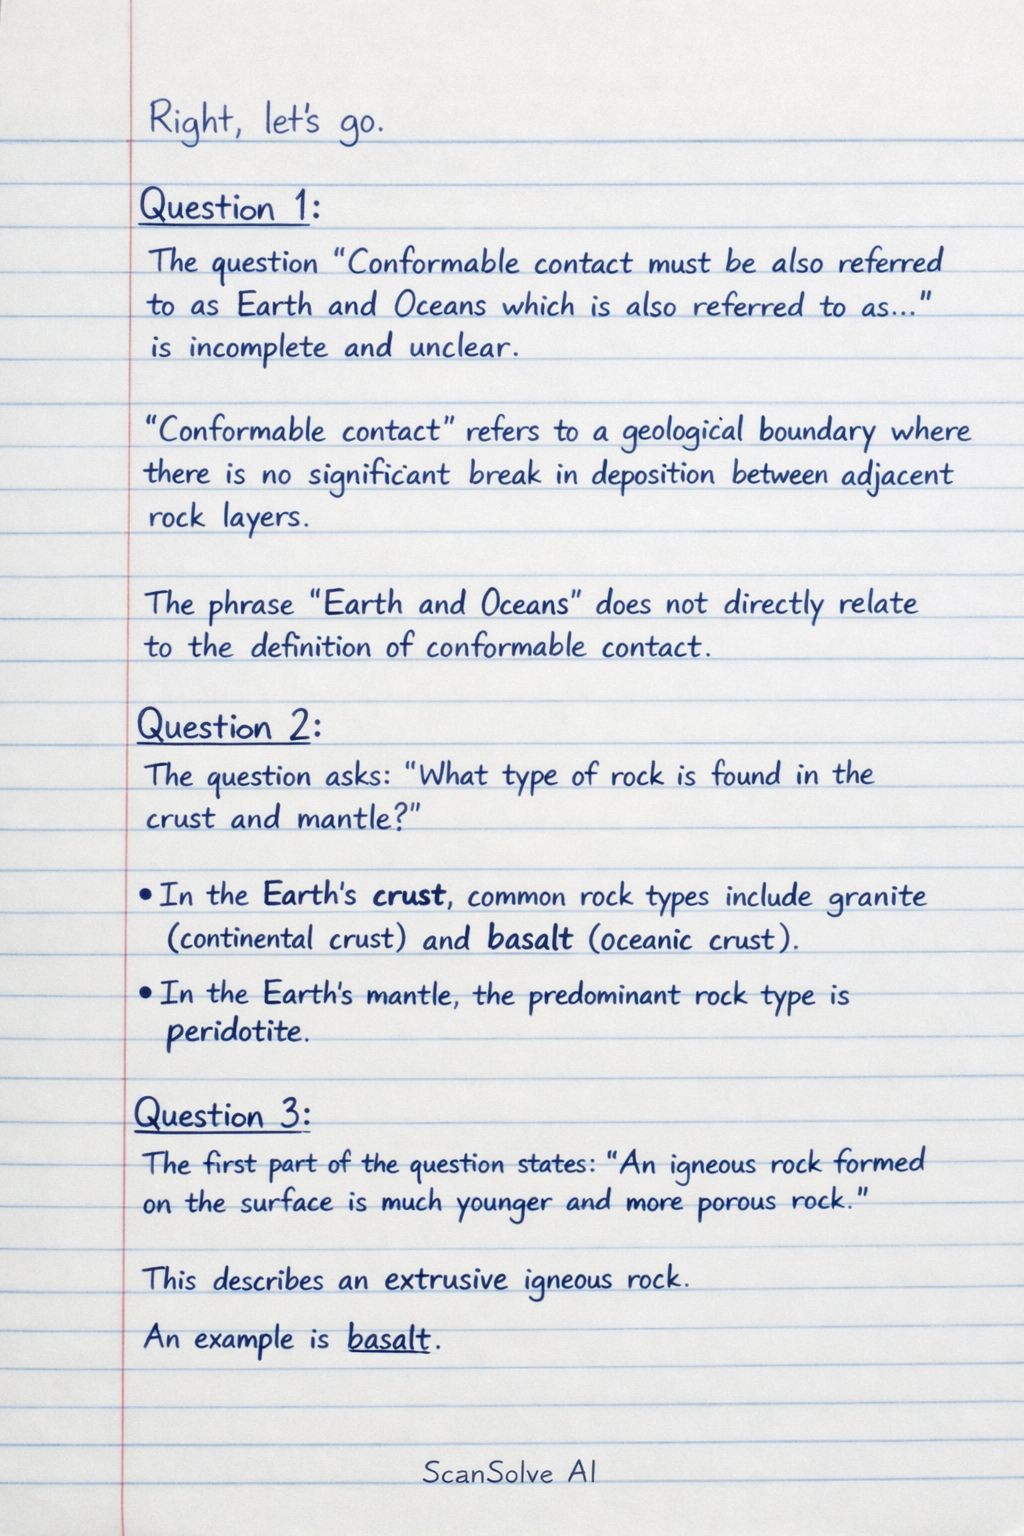 Right, let's go.
Question 1:
The question “Conformable contact must be also referred
to as Earth and Oceans which is also referred to as...”
is incomplete and unclear.
“Conformable contact” refers to a geological boundary where
there is no significant break in deposition between adjacent
rock layers.
The phrase “Earth and Oceans” does not directly relate
to the definition of conformable contact.
Question 2:
The question asks: “What type of rock is found in the
crust and mantle?”
• In the Earth's crust, common rock types include granite
(continental crust) and basalt (oceanic crust).
• In the Earth's mantle, the predominant rock type is
peridotite.
Question 3:
The first part of the question states: “An igneous rock formed
on the surface is much younger and more porous rock.”
This describes an extrusive igneous rock.
An example is basalt.
ScanSolve AI